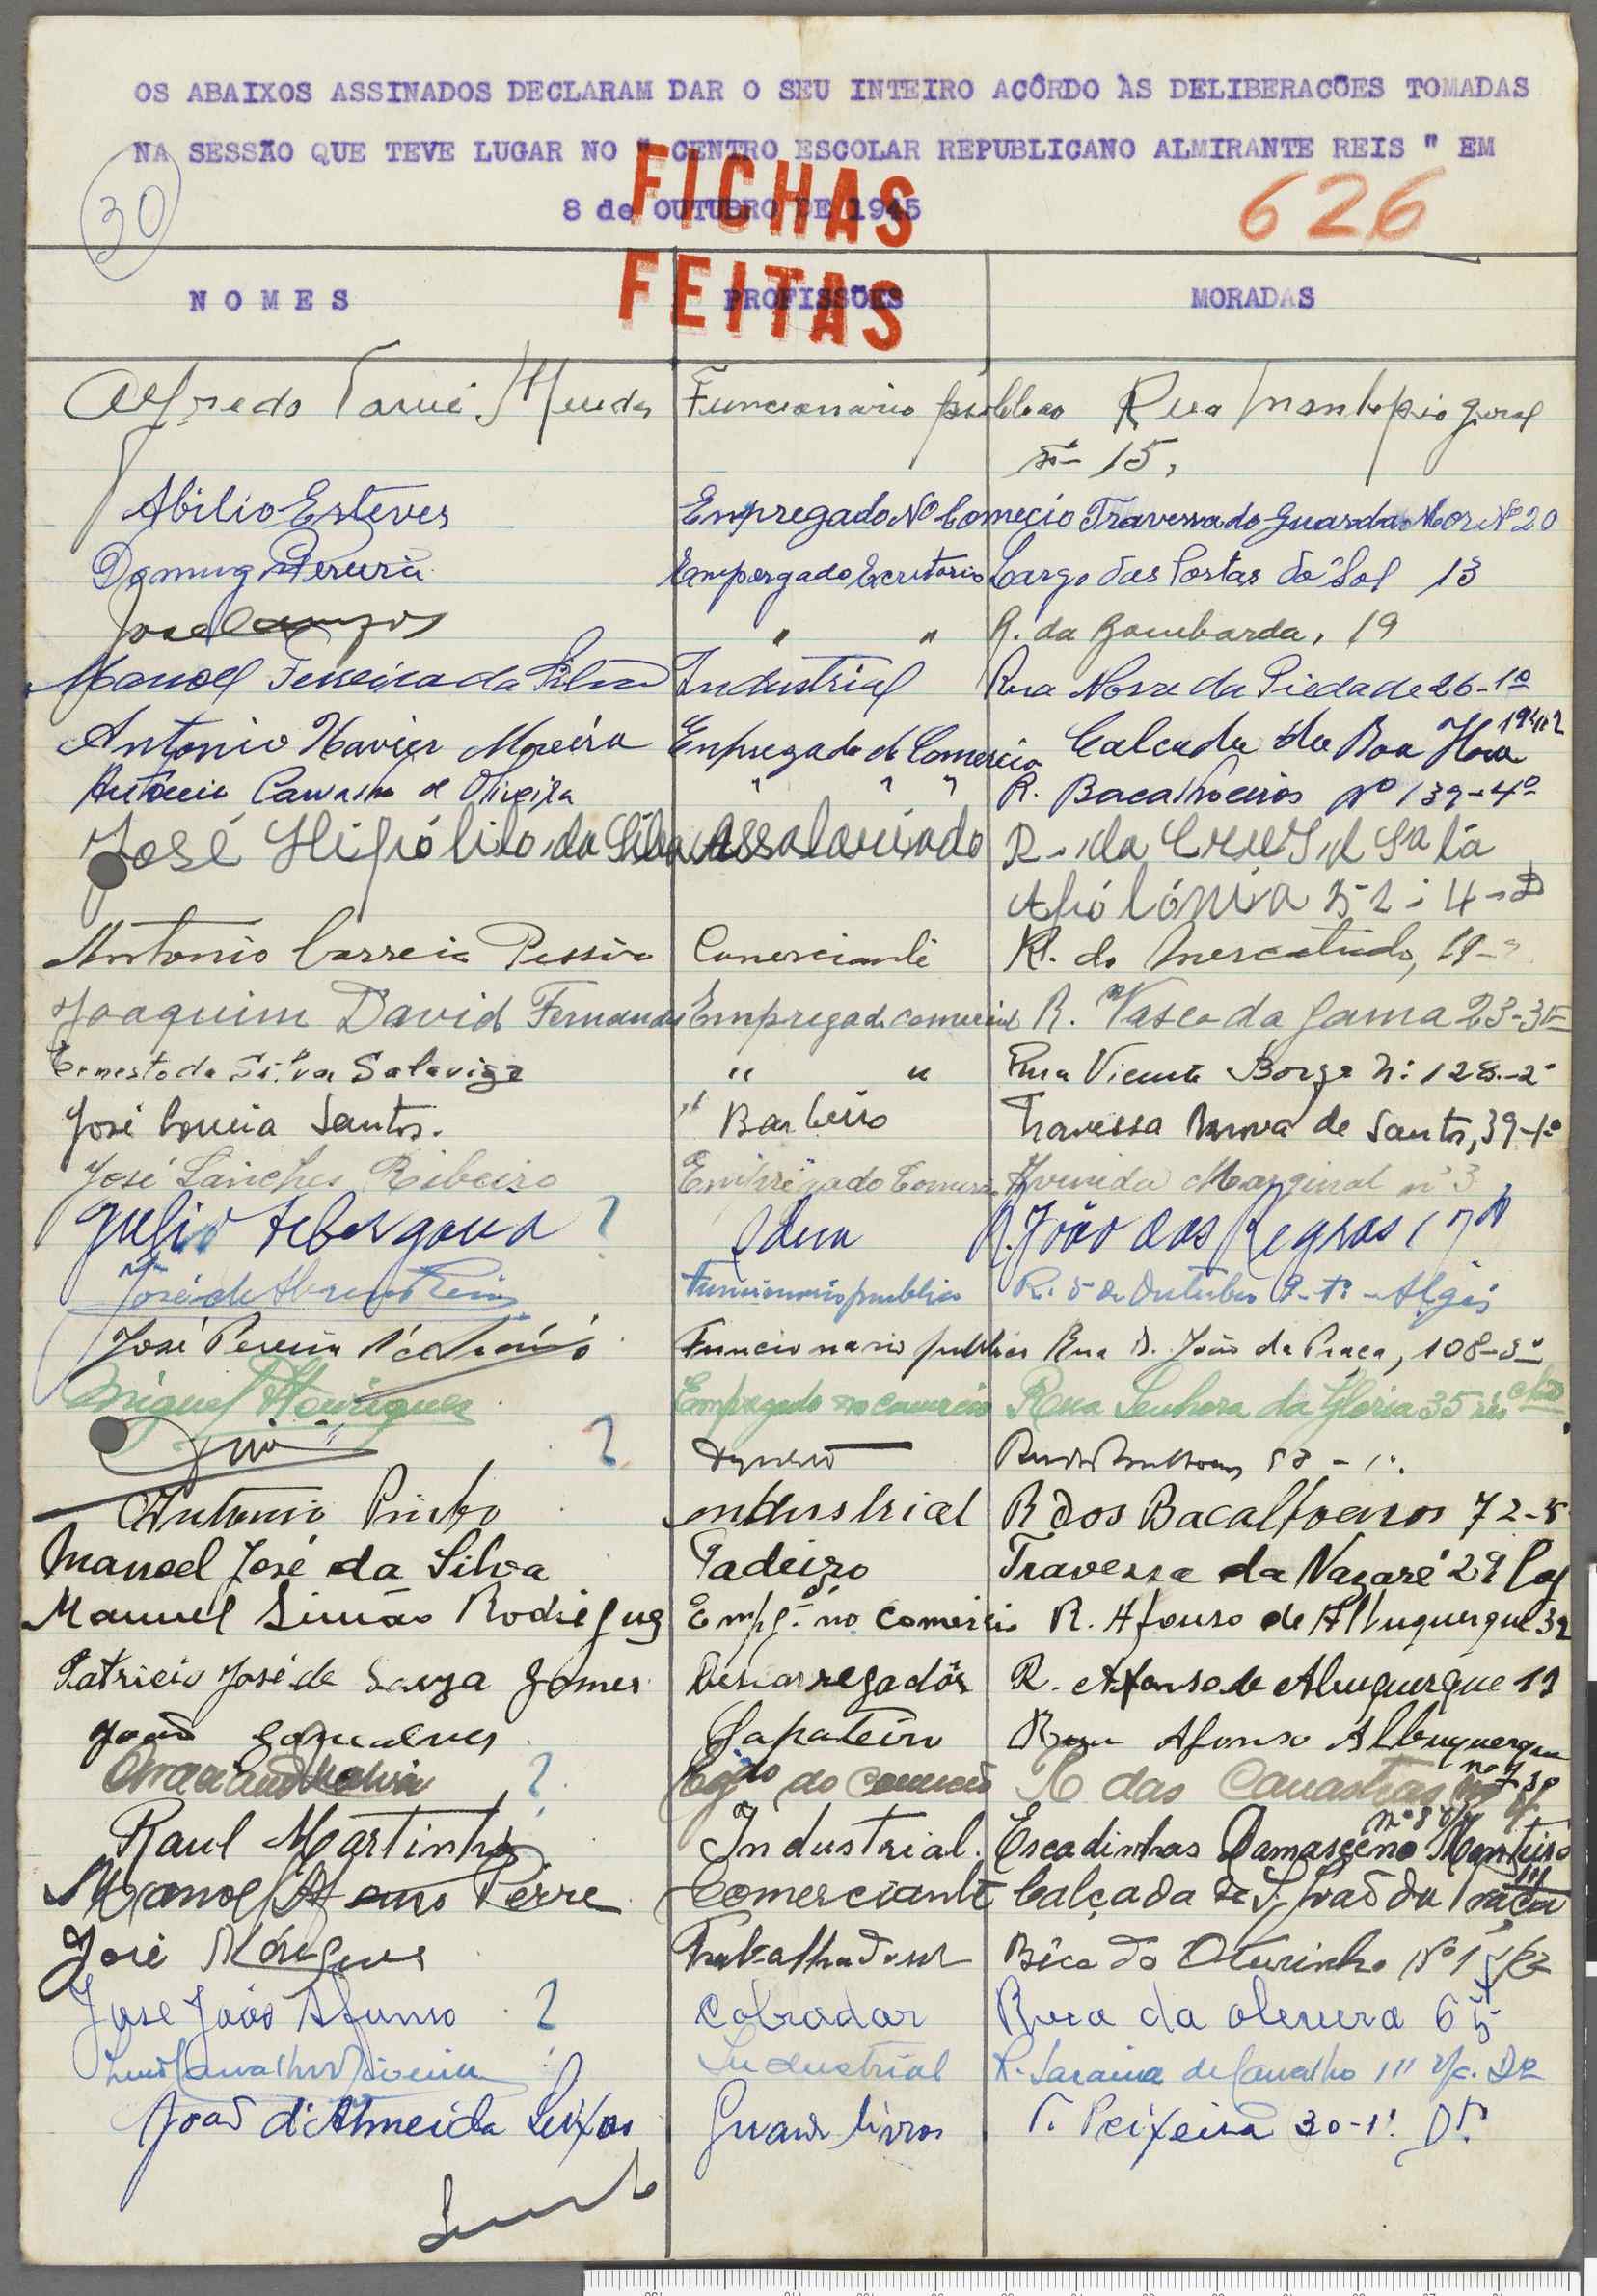 OS ABAIXOS ASSINADOS DECLARAM DAR O SEU INTEIRO ACÔRDO ÀS DELIBERACÕES TOMADAS
NA SESSÃO QUE TEVE LUGAR NO " CENTRO ESCOLAR REPUBLICANO ALMIRANTE REIS " EM
8 de OUTUBRO DE 1945
30
FICHAS
FEITAS
626
NOMES PROFISSÕES MORADAS
Alfredo Funcionario publico Rua Montepio Geral
nº 15,
Abilio Esteves Empregado No Comecio Travessa do Guarda Mor Nº 20
Pereira Empergado Escritorio Largo das Portas do Sol 13
José Campos " " R. da Bombarda, 19
Manoel Ferreira da Silva Industrial Rua Nova da Piedade 26-1º
Antonio Xavier Moreira Empregado do Comercio Calçada da Boa Hora
António Carvalho d' Oliveira " " " R. Bacalhoeiros Nº 139-4º
José Hipólito da Silva Assalariado R. da Cruz d Sata
Apólónia
Antonio Correia Pessoa Comerciante R. do Mercatudo, 19
Joaquim David Fernandes Empregado comercial R. Vasco da Gama 23-3º
Ernesto da Silva Salaviza " " Rua Vicente Borga Nº 128-2º
José Correia Santos. " Barbeiro Travessa Nova de Santos, 39-1º
José Sanches Ribeiro Empregado Comercio Avenida Marginal nº 3
Julio ? Idem R. João das Regras
José de Abreu Funcionario publico R. 5 de Outubro - Algés
José Pereira Funcionario publico Rua D. João da Praça, 108-3º
Miguel Henriques Empregado no comercio Rua Senhora da Glória 35 rés chão
?
Antonio Pinto industrial R dos Bacalhoeiros 72-5
Manoel José da Silva Padeiro Travessa da Nazaré 29
Manuel Simão Rodrigues Empg.º no comercio R. Afonso de Albuquerque 32
Patricio José de Souza Gomes Descarregadôr R. Afonso de Albuquerque 19
João Gonçalves Sapateiro Rua Afonso Albuquerque
? do comercio R das Canastras
Raul Martinho Industrial. Escadinhas Damasceno Monteiro
Manoel Afonso Pirre Comerciante Calçada de S. João da Praça
José Trabalhador Bêco do Oturinho Nº 1
José João Afonso ? Cobrador Rua da oliveira 65
Luis Carvalho Oliveira Industrial R. Saraiva de Carvalho 111 r/c. Dº
João d'Almeida Seixas Guarda livros T. Peixeira 30-1º Dº